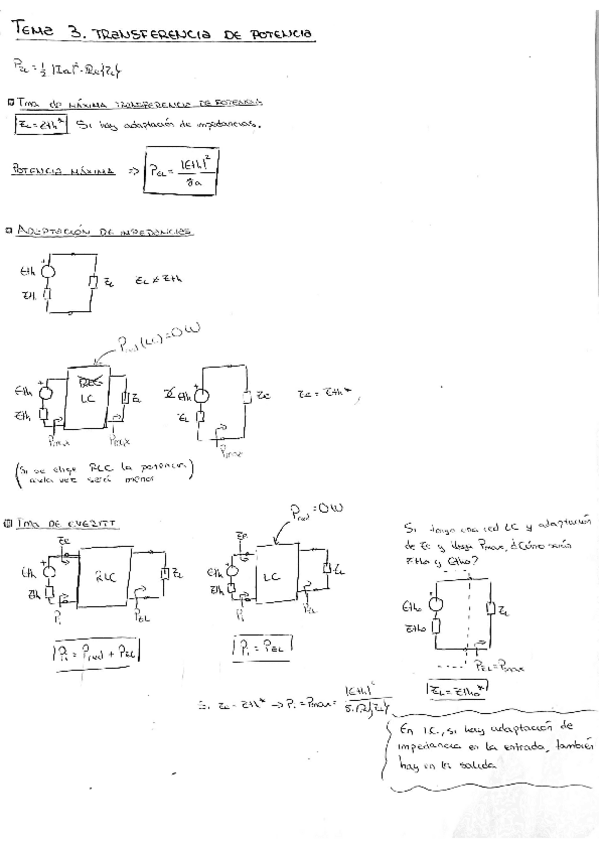 TEMA 3. TRANSFERENCIA DE POTENCIA
P_ZL = 1/2 |Za|². Re{ZL}
Tma de MÁXIMA TRANSFERENCIA DE POTENCIA
ZL = Zth* Si hay adaptación de impedancias.
POTENCIA MÁXIMA => P_ZL = |Eth|² / 8a
ADAPTACIÓN DE IMPEDANCIAS
Eth
Zth
ZL
ZL ≠ Zth
P red (LC) = 0W
Eth
Zth
RLC
LC
ZL
Pmax
Pmax
Eth
ZL
Ze
Pmax
Ze = Zth*
(Si se elige RLC la potencia
será menor)
Tma DE EVERITT
Ze
Eth
Zth
RLC
ZL
Pi
P_ZL
Pi = Pred + P_ZL
Pred = 0W
Ze
Eth
Zth
LC
ZL
Pi
P_ZL
Pi = P_ZL
Si tengo una red LC y adaptación
de Ze y llega Pmax, ¿Cómo serán
Ztho y Etho?
Etho
Ztho
ZL
P_ZL = Pmax
ZL = Ztho*
Si Ze = Zth* → Pi = Pmax = |Eth|² / 8.R{Ze}
En LC, si hay adaptación de
impedancia en la entrada, también
hay en la salida